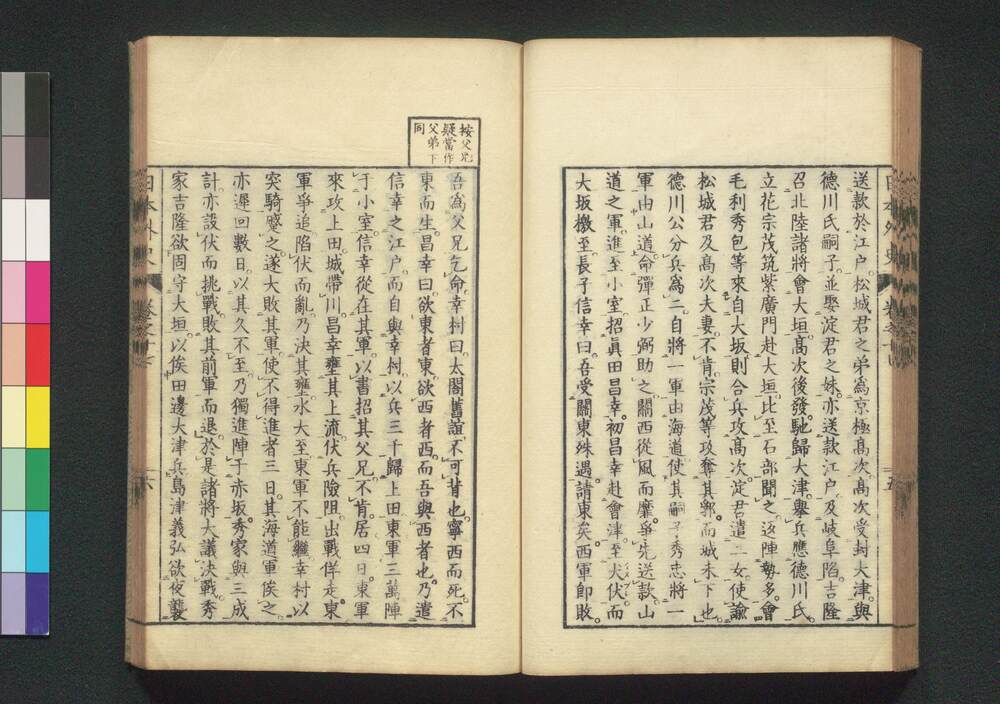 送款於江戸。松城君之弟爲京極髙次。髙次受封大津。與
德川氏嗣子。並娶淀君之妹。亦送款江戸。及岐阜陷。吉隆
召北陸諸將會大垣。髙次後發。馳歸大津。舉兵應德川氏。
立花宗茂筑紫廣門赴大垣。比至石部聞之。返陣勢多。會
毛利秀包等來自大坂。則合兵攻髙次。淀君遣二女使諭
松城君及髙次夫妻。不肯。宗茂等攻奪其郛。而城未下也。
德川公分兵爲二。自將一軍由海道。使其嗣子秀忠將一
軍由山道。命彈正少弼助之。關西從風而靡。爭先送款。山
道之軍。進至小室。招眞田昌幸。初昌幸赴會津。至犬伏。而
大坂檄至。長子信幸曰。吾受關東殊遇。請東矣。西軍即敗。
日本外史
按父兄
疑當作
父弟下
同
吾爲父兄乞命。幸村曰。太閤舊誼不可背也。寧西而死。不
東而生。昌幸曰。欲東者東。欲西者西。而吾與西者也。乃遣
信幸之江戸。而自與幸村。以兵三千歸上田。東軍三萬陣
于小室。信幸從在其軍。以書招其父兄。不肯。居四日。東軍
來攻上田。城帶川。昌幸壅其上流。伏兵險阻。出戰佯走。東
軍爭追陷伏而亂。乃決其壅。水大至。東軍不能繼。幸村以
突騎蹙之。遂大敗其軍。使不得進者三日。其海道軍俟之。
亦遲回數日。以其久不至。乃獨進陣于赤坂。秀家與三成
計。亦設伏而挑戰。敗其前軍而退。於是諸將大議決戰。秀
家吉隆欲固守大垣。以俟田邊大津兵。島津義弘欲夜襲
日本外史 卷之十 六